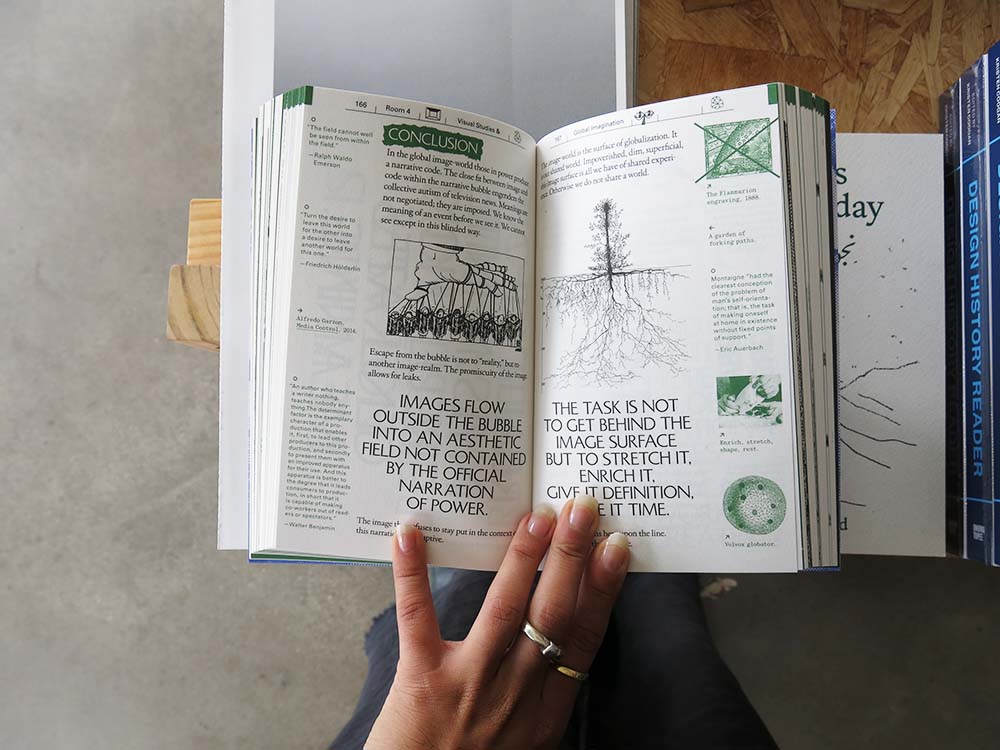 166
Room 4
Visual Studies &
"The field cannot well
be seen from within
the field."
—Ralph Waldo
Emerson
"Turn the desire to
leave this world
for the other into
a desire to leave
another for this
one."
—Friedrich Hölderlin
Alfredo Garzon,
Media Control, 2014.
"An author who teaches
a writer nothing,
teaches nobody any-
thing. The determinant
factor is the exemplary
character of a pro-
duction that enables
it, first, to lead other
producers to this pro-
duction, and secondly
to present them with
an improved apparatus
for their use. And this
apparatus is better to
the degree that it leads
consumers to produc-
tion, in short that it
is capable of making
co-workers out of read-
ers or spectators."
—Walter Benjamin
CONCLUSION
In the global image-world those in power produce
a narrative code. The close fit between image and
code within the narrative bubble engenders the
collective autism of television news. Meanings are
not negotiated; they are imposed. We know the
meaning of an event before we see it. We cannot
see except in this blinded way.
Escape from the bubble is not to "reality," but to
another image-realm. The promiscuity of the image
allows for leaks.
IMAGES FLOW
OUTSIDE THE BUBBLE
INTO AN AESTHETIC
FIELD NOT CONTAINED
BY THE OFFICIAL
NARRATION
OF POWER.
The image refuses to stay put in the context
this narrati
167
Global Imagination
The image-world is the surface of globalization. It
is our shared world. Impoverished, dim, superficial,
this image surface is all we have of shared experi-
ence. Otherwise we do not share a world.
THE TASK IS NOT
TO GET BEHIND THE
IMAGE SURFACE
BUT TO STRETCH IT,
ENRICH IT,
GIVE IT DEFINITION,
E IT TIME.
upon the line.
The Flammarion
engraving, 1888.
A garden of
forking paths.
Montaigne "had the
clearest conception
of the problem of
man's self-orienta-
tion; that is, the task
of making oneself
at home in existence
without fixed points
of support."
—Eric Auerbach
Enrich, stretch,
shape, rest.
Volvox globator.
s
day
d
DESIGN HISTORY READER
KRISTEN COOGAN